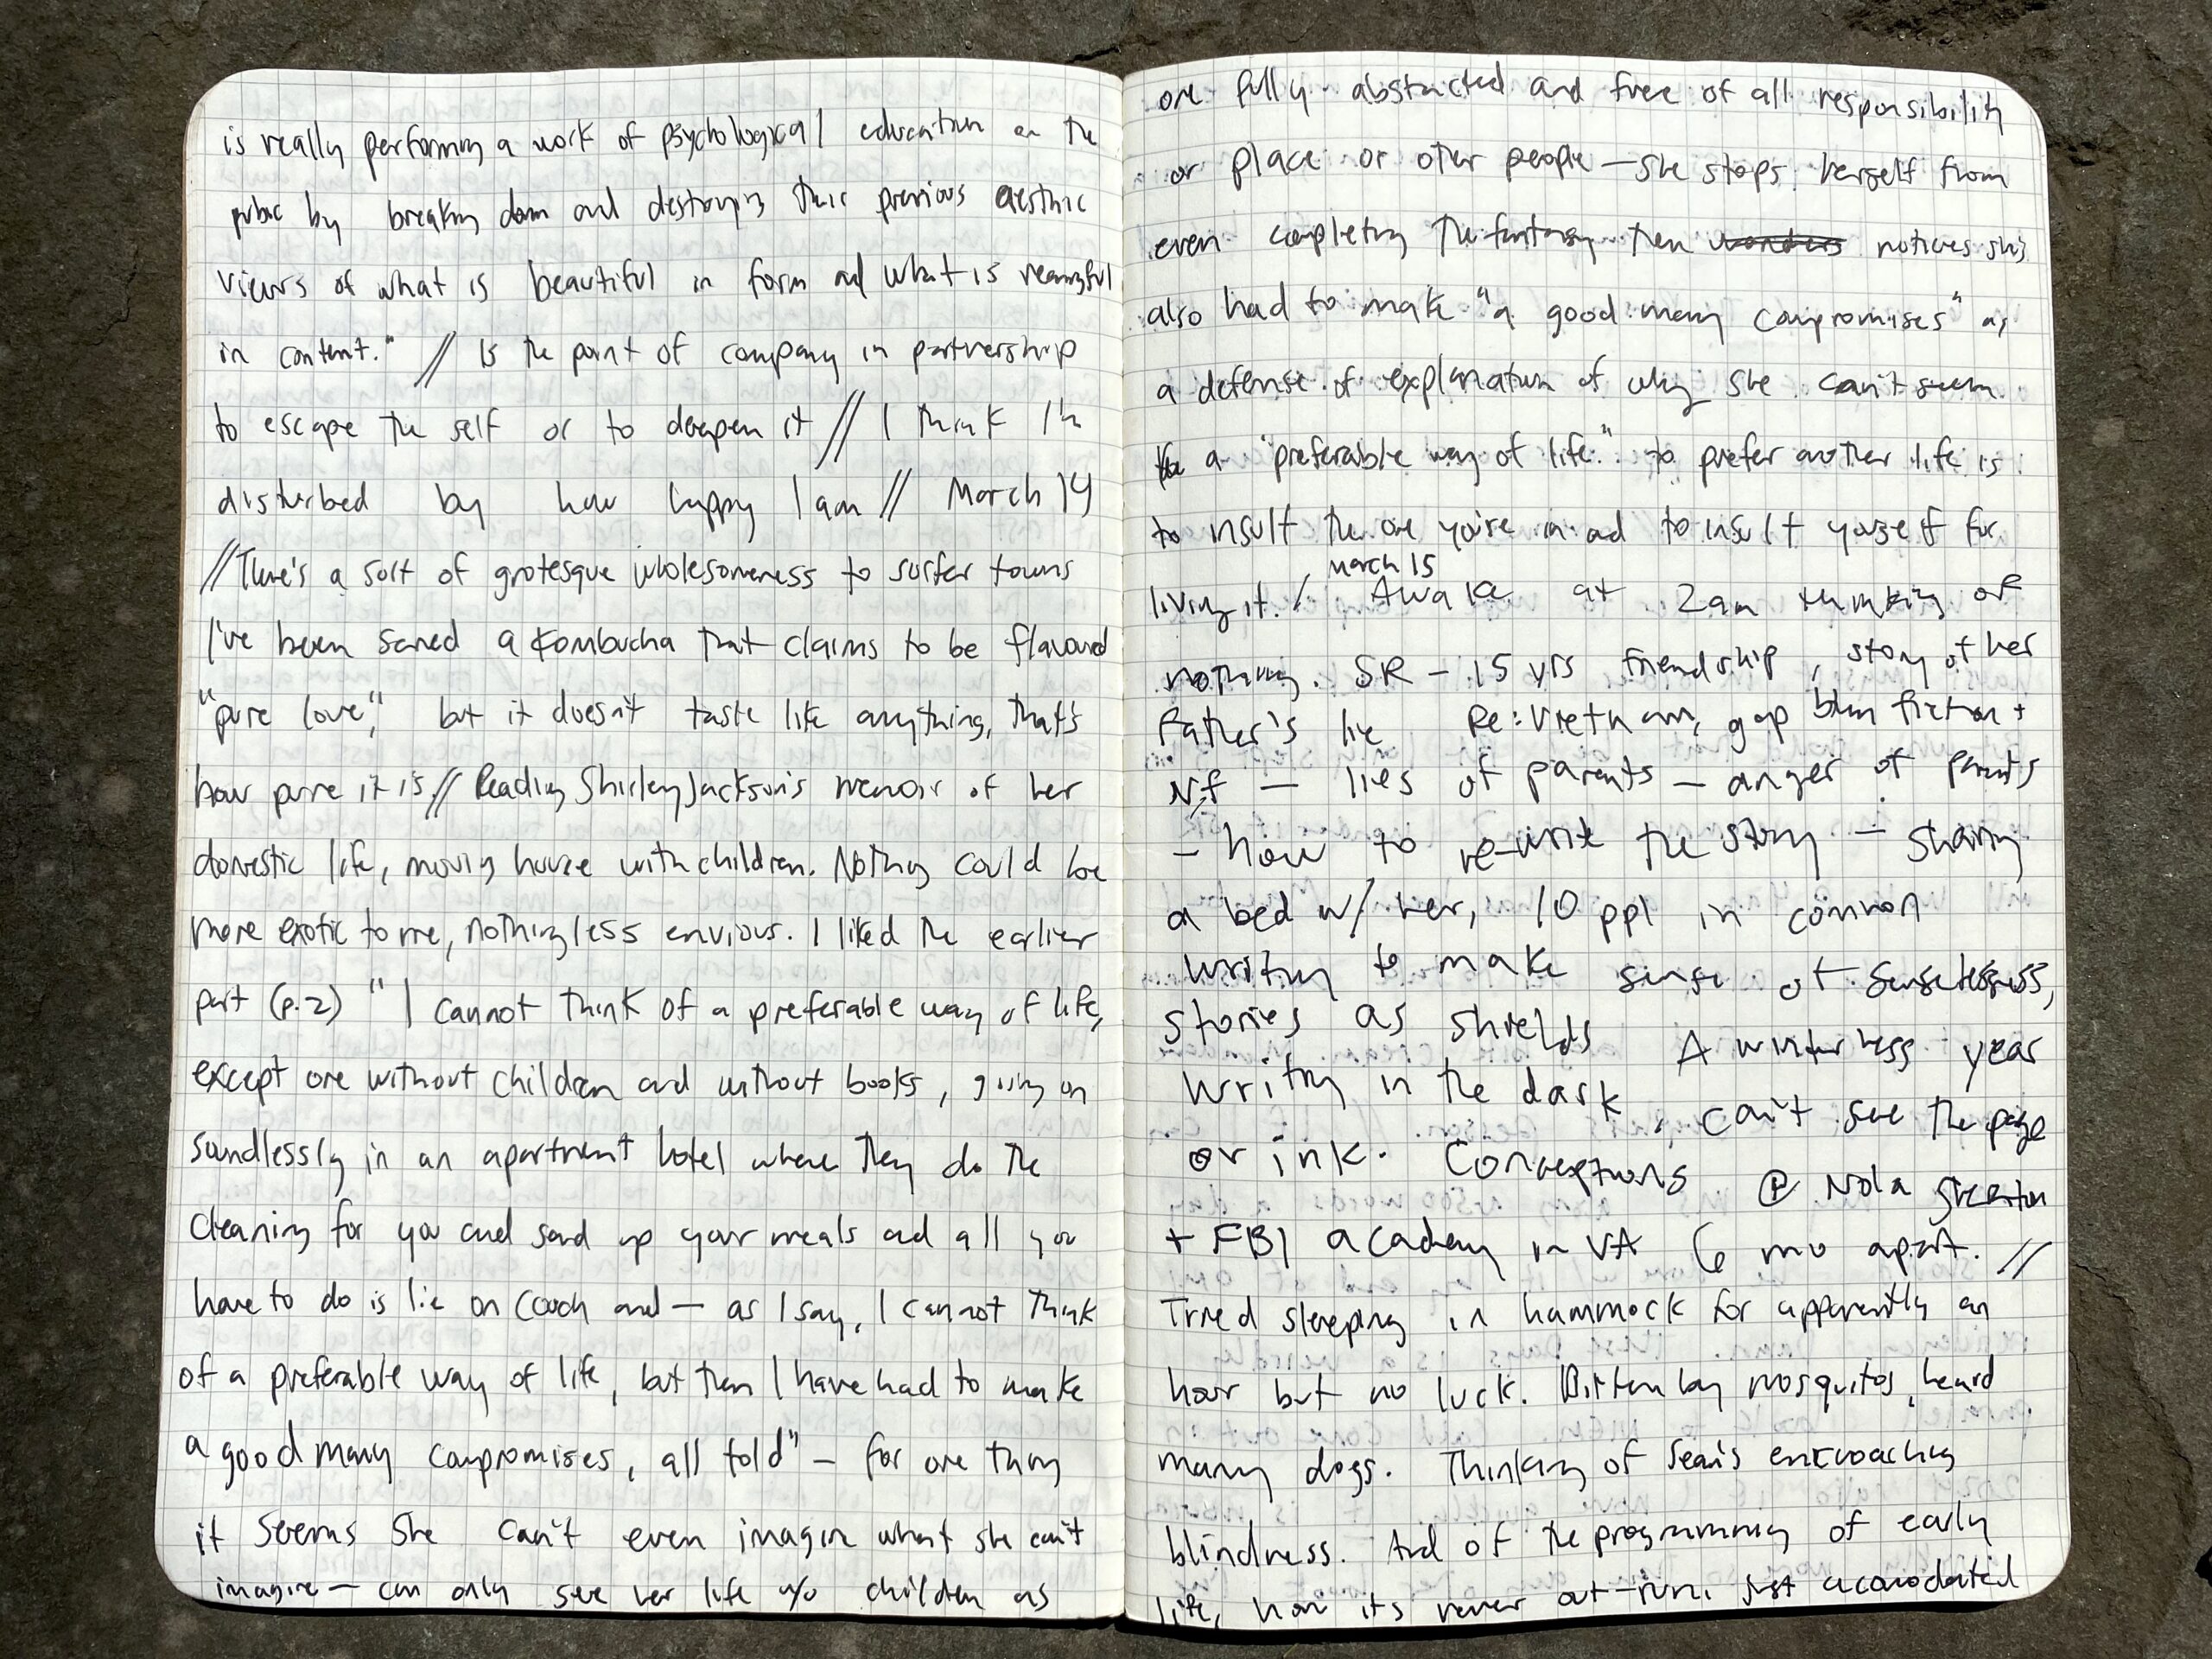 is really performing a work of psychological education on the
public by breaking down and destroying their previous aesthetic
views of what is beautiful in form and what is meaningful
in content." // Is the point of company in partnership
to escape the self or to deepen it // I think I'm
disturbed by how happy I am // March 14
// There's a sort of grotesque wholesomeness to surfer towns
I've been served a kombucha that claims to be flavored
"pure love," but it doesn't taste like anything, that's
how pure it is // Reading Shirley Jackson's memoir of her
domestic life, moving house with children. Nothing could be
more exotic to me, nothing less envious. I liked the earlier
part (p.2) "I cannot think of a preferable way of life,
except one without children and without books, going on
soundlessly in an apartment hotel where they do the
cleaning for you and send up your meals and all you
have to do is lie on couch and — as I say, I cannot think
of a preferable way of life, but then I have had to make
a good many compromises, all told" — for one thing
it seems she can't even imagine what she can't
imagine — can only see her life w/o children as
one fully abstracted and free of all responsibility
or place or other people — she stops herself from
even completing the fantasy then wonders notices she's
also had to make "a good many compromises" as
a defense of explanation of why she can't seem
a "preferable way of life." to prefer another life is
to insult the one you're in and to insult yourself for
living it. / March 15 Awake at 2am thinking of
nothing. SR – 15 yrs friendship, story of her
Father's lie Re: Vietnam, gap btwn fiction +
NF — lies of parents — anger of parents
— how to re-write the story — sharing
a bed w/ her, 10 ppl in common
writing to make sense of senselessness,
stories as shields A writerless year
writing in the dark, can't see the page
or ink. Conceptions @ Nola
+ FBI academy in VA 6 mo apart. //
Tried sleeping in hammock for apparently an
hour but no luck. Bitten by mosquitos, heard
many dogs. Thinking of Sean's encroaching
blindness. And of the programming of early
life, how it's never out-run, just accomodated